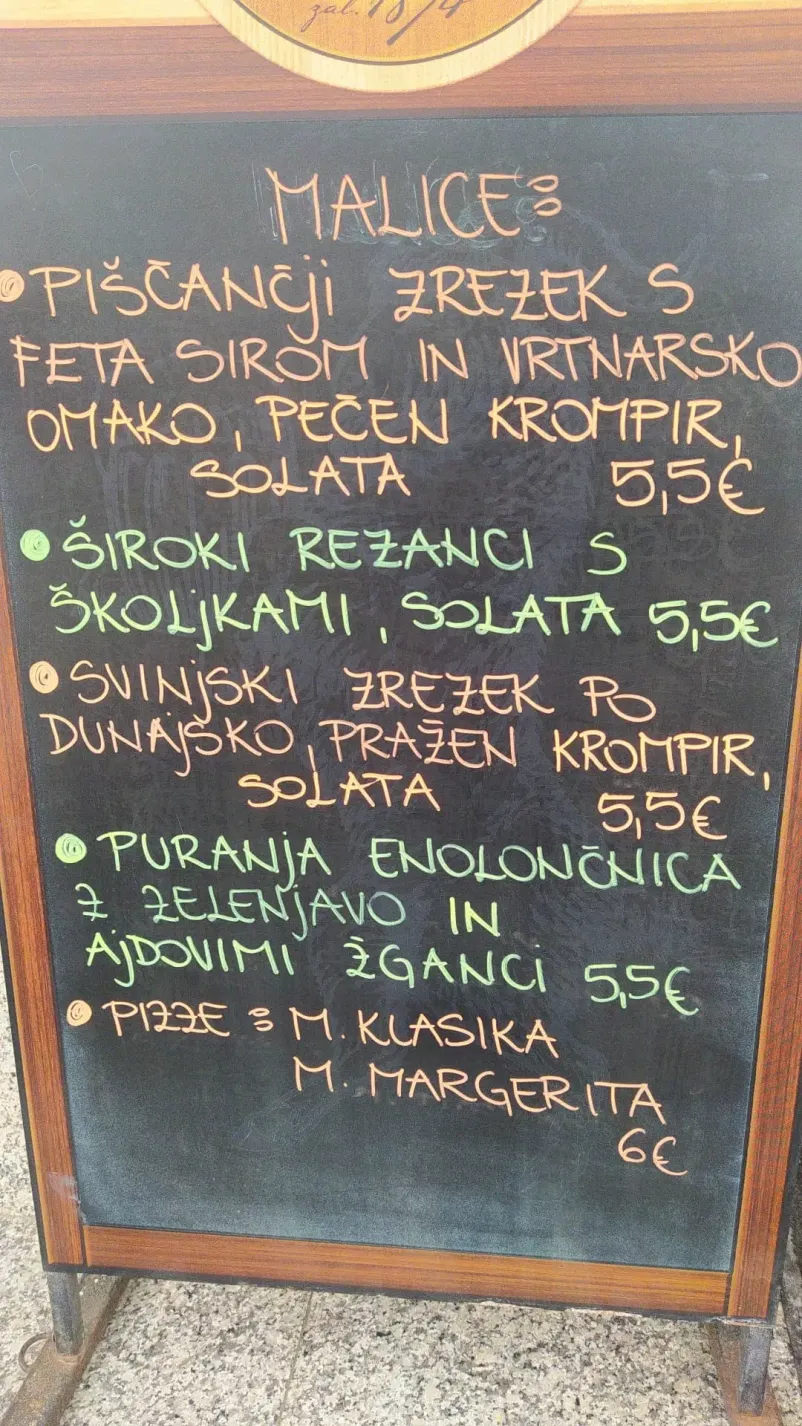 zal. 1874
MALICE:
• PIŠČANČJI ZREZEK S
FETA SIROM IN VRTNARSKO
OMAKO, PEČEN KROMPIR,
SOLATA 5,5€
• ŠIROKI REZANCI S
ŠKOLJKAMI, SOLATA 5,5€
• SVINJSKI ZREZEK PO
DUNAJSKO, PRAŽEN KROMPIR,
SOLATA 5,5€
• PURANJA ENOLONČNICA
Z ZELENJAVO IN
AJDOVIMI ŽGANCI 5,5€
• PIZZE: M. KLASIKA
M. MARGERITA
6€